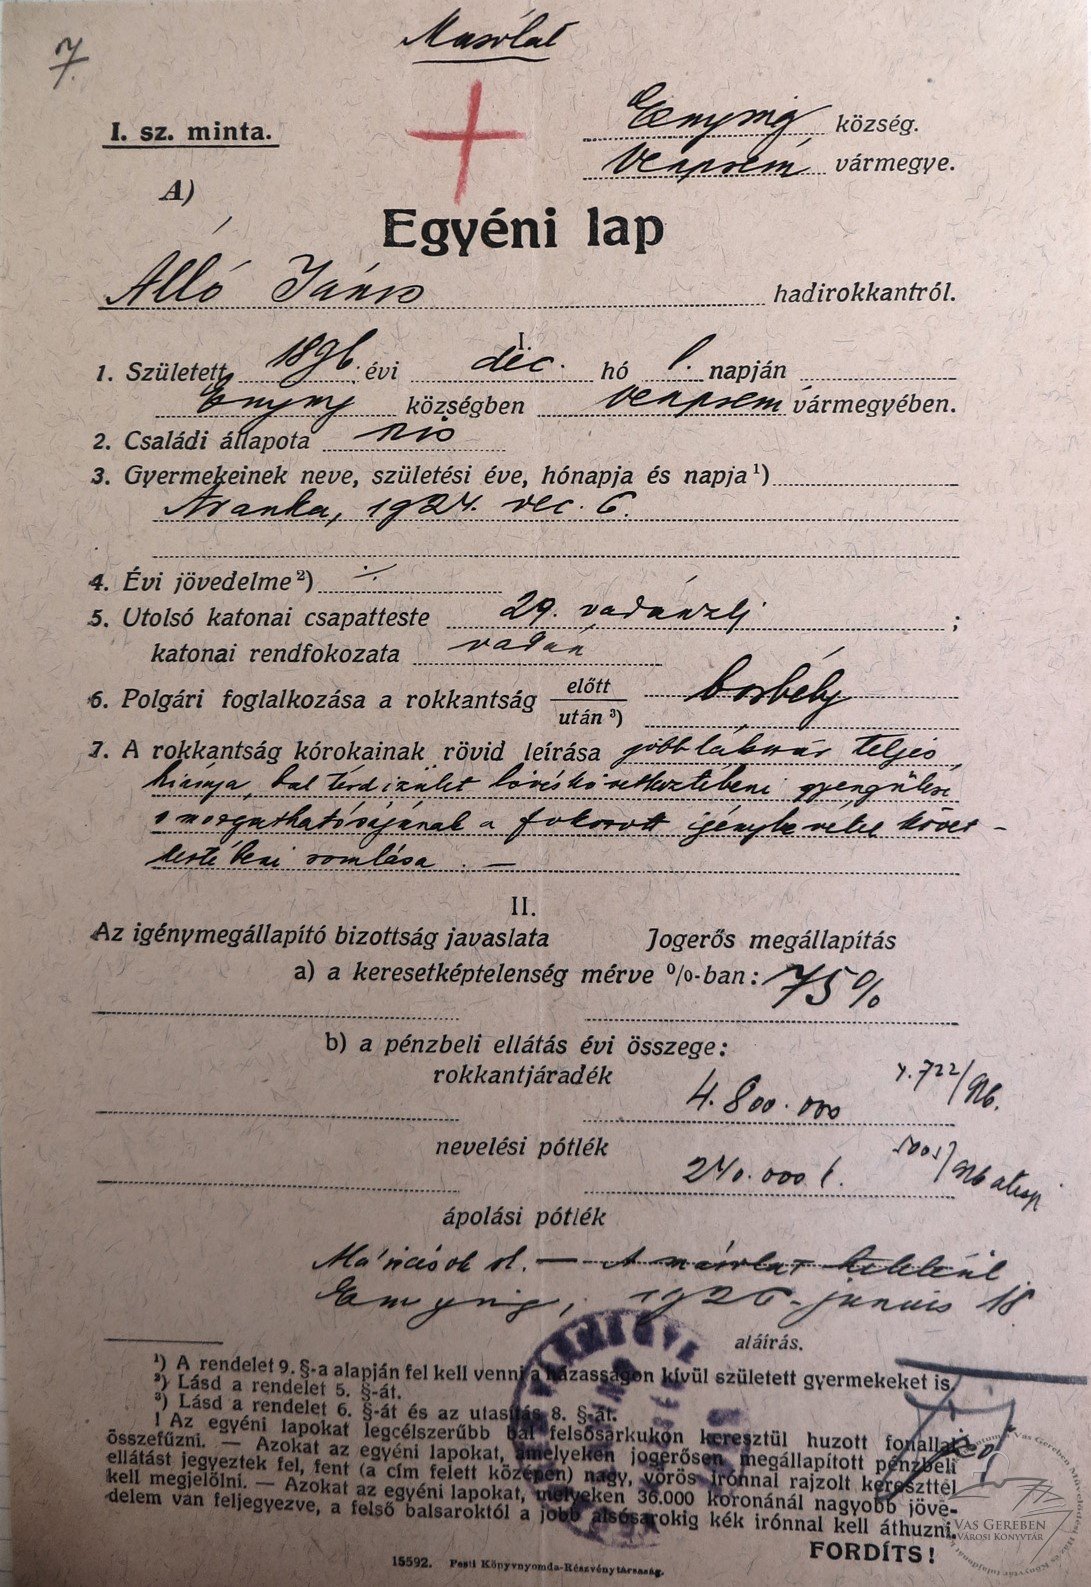 7.
Másolat
I. sz. minta.
Enying község.
Veszprém vármegye.
A)
Egyéni lap
Alló János hadirokkantról.
I.
1. Született 1896. évi dec. hó 1. napján
Enying községben Veszprém vármegyében.
2. Családi állapota nős
3. Gyermekeinek neve, születési éve, hónapja és napja¹)
Aranka, 1924. dec. 6.
4. Évi jövedelme²) ·/·
5. Utolsó katonai csapatteste 29. vadászzlj ;
katonai rendfokozata vadász
6. Polgári foglalkozása a rokkantság előtt borbély
után³)
7. A rokkantság kórokainak rövid leírása jobb lábszár teljes
hiánya, bal térdizület lövés következtébeni gyengülése
s mozgathatóságának a fokozott igénybevétel követ-
keztébeni romlása. —
II.
Az igénymegállapító bizottság javaslata Jogerős megállapítás
a) a keresetképtelenség mérve %-ban: 75%
b) a pénzbeli ellátás évi összege:
rokkantjáradék
4.800.000
nevelési pótlék
240.000
ápolási pótlék
A másolat hiteléül
Enying, 1926. junius 18
aláírás.
¹) A rendelet 9. §-a alapján fel kell venni a házasságon kívül született gyermekeket is.
²) Lásd a rendelet 5. §-át.
³) Lásd a rendelet 6. §-át és az utasítás 8. §-át.
! Az egyéni lapokat legcélszerűbb bal felsősarkukon keresztül huzott fonallal
összefűzni. — Azokat az egyéni lapokat, amelyeken jogerősen megállapított pénzbeli
ellátást jegyeztek fel, fent (a cím felett középen) nagy, vörös irónnal rajzolt kereszttel
kell megjelölni. — Azokat az egyéni lapokat, melyeken 36.000 koronánál nagyobb jöve-
delem van feljegyezve, a felső balsaroktól a jobb alsósarokig kék irónnal kell áthuzni.
FORDÍTS!
15592. Pesti Könyvnyomda-Részvénytársaság.
VAS GEREBEN
VÁROSI KÖNYVTÁR